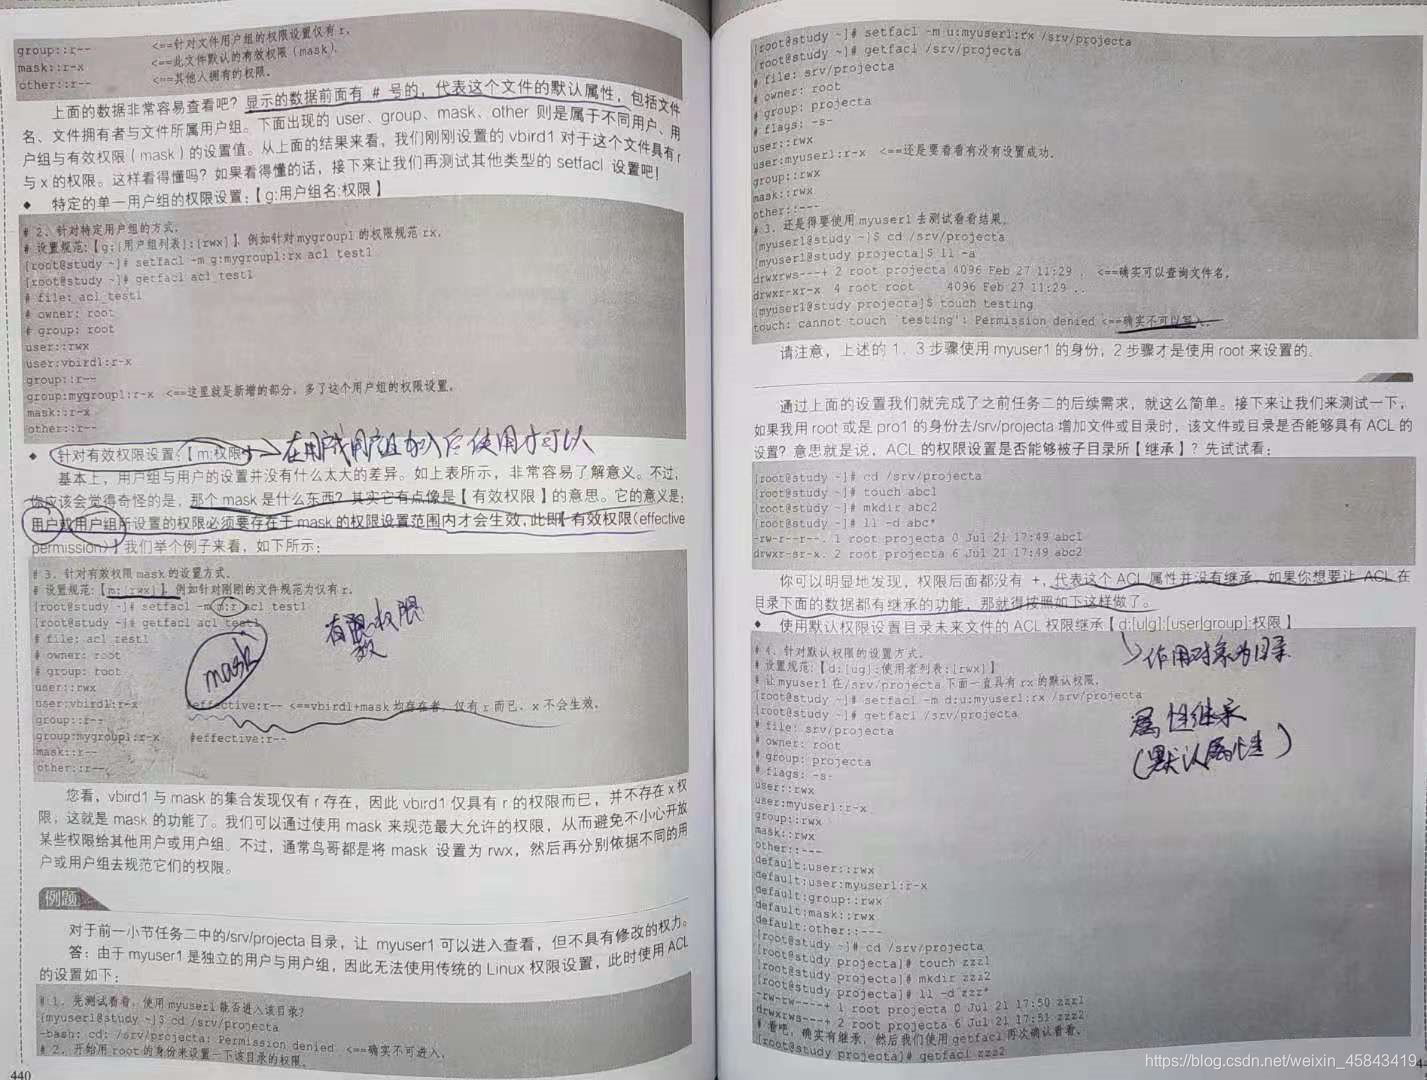 group::r-- <==针对文件用户组的权限设置仅有 r。
mask::r-x <==此文件默认的有效权限（mask）。
other::r-- <==其他人拥有的权限。
上面的数据非常容易查看吧？显示的数据前面有 # 号的，代表这个文件的默认属性，包括文件
名、文件拥有者与文件所属用户组。下面出现的 user、group、mask、other 则是属于不同用户、用
户组与有效权限（mask）的设置值。从上面的结果来看，我们刚刚设置的 vbird1 对于这个文件具有 r
与 x 的权限。这样看得懂吗？如果看得懂的话，接下来让我们再测试其他类型的 setfacl 设置吧！
◆ 特定的单一用户组的权限设置：【g:用户组名:权限】
# 2、针对特定用户组的方式。
# 设置规范：【g:[用户组列表]:[rwx]】例如针对 mygroup1 的权限规范 rx。
[root@study ~]# setfacl -m g:mygroup1:rx acl_test1
[root@study ~]# getfacl acl_test1
# file: acl_test1
# owner: root
# group: root
user::rwx
user:vbird1:r-x
group::r--
group:mygroup1:r-x <==这里就是新增的部分，多了这个用户组的权限设置。
mask::r-x
other::r--
◆ 针对有效权限设置：【m:权限】
基本上，用户组与用户的设置并没有什么太大的差异。如上表所示，非常容易了解意义。不过，
你应该会觉得奇怪的是，那个 mask 是什么东西？其实它有点像是【有效权限】的意思。它的意义是：
用户或用户组所设置的权限必须要存在于 mask 的权限设置范围内才会生效，此即【有效权限（effective
permission）】我们举个例子来看，如下所示：
# 3、针对有效权限 mask 的设置方式。
# 设置规范：【m:[rwx]】例如针对刚刚的文件规范为仅有 r。
[root@study ~]# setfacl -m m:r acl_test1
[root@study ~]# getfacl acl_test1
# file: acl_test1
# owner: root
# group: root
mask
user::rwx
user:vbird1:r-x #effective:r-- <==vbird1+mask 均存在者，仅有 r 而已，x 不会生效。
group::r--
group:mygroup1:r-x #effective:r--
mask::r--
other::r--
您看，vbird1 与 mask 的集合发现仅有 r 存在，因此 vbird1 仅具有 r 的权限而已，并不存在 x 权
限，这就是 mask 的功能了。我们可以通过使用 mask 来规范最大允许的权限，从而避免不小心开放
某些权限给其他用户或用户组。不过，通常鸟哥都是将 mask 设置为 rwx，然后再分别依据不同的用
户或用户组去规范它们的权限。
例题
对于前一小节任务二中的/srv/projecta 目录，让 myuser1 可以进入查看，但不具有修改的权力。
答：由于 myuser1 是独立的用户与用户组，因此无法使用传统的 Linux 权限设置，此时使用 ACL
的设置如下：
# 1、先测试看看，使用 myuser1 能否进入该目录？
[myuser1@study ~]$ cd /srv/projecta
-bash: cd: /srv/projecta: Permission denied <==确实不可进入。
# 2、开始用 root 的身份来设置一下该目录的权限。
440
[root@study ~]# setfacl -m u:myuser1:rx /srv/projecta
[root@study ~]# getfacl /srv/projecta
# file: srv/projecta
# owner: root
# group: projecta
# flags: -s-
user::rwx
user:myuser1:r-x <==还是要看看有没有设置成功。
group::rwx
mask::rwx
other::---
# 3、还是得要使用 myuser1 去测试看看结果。
[myuser1@study ~]$ cd /srv/projecta
[myuser1@study projecta]$ ll -a
drwxrws---+ 2 root projecta 4096 Feb 27 11:29 . <==确实可以查询文件名。
drwxr-xr-x 4 root root 4096 Feb 27 11:29 ..
[myuser1@study projecta]$ touch testing
touch: cannot touch `testing': Permission denied <==确实不可以写入。
请注意，上述的 1、3 步骤使用 myuser1 的身份，2 步骤才是使用 root 来设置的。
通过上面的设置我们就完成了之前任务二的后续需求，就这么简单。接下来让我们来测试一下，
如果我用 root 或是 pro1 的身份去/srv/projecta 增加文件或目录时，该文件或目录是否能够具有 ACL 的
设置？意思就是说，ACL 的权限设置是否能够被子目录所【继承】？先试试看：
[root@study ~]# cd /srv/projecta
[root@study ~]# touch abc1
[root@study ~]# mkdir abc2
[root@study ~]# ll -d abc*
-rw-r--r--. 1 root projecta 0 Jul 21 17:49 abc1
drwxr-sr-x. 2 root projecta 6 Jul 21 17:49 abc2
你可以明显地发现，权限后面都没有 +，代表这个 ACL 属性并没有继承，如果你想要让 ACL 在
目录下面的数据都有继承的功能，那就得按照如下这样做了。
◆ 使用默认权限设置目录未来文件的 ACL 权限继承【d:[u|g]:[user|group]:权限】
作用对象为目录
# 4、针对默认权限的设置方式。
# 设置规范：【d:[ug]:使用者列表:[rwx]】
# 让 myuser1 在/srv/projecta 下面一直具有 rx 的默认权限。
[root@study ~]# setfacl -m d:u:myuser1:rx /srv/projecta
[root@study ~]# getfacl /srv/projecta
属性继承
(默认属性)
# file: srv/projecta
# owner: root
# group: projecta
# flags: -s-
user::rwx
user:myuser1:r-x
group::rwx
mask::rwx
other::---
default:user::rwx
default:user:myuser1:r-x
default:group::rwx
default:mask::rwx
default:other::---
[root@study ~]# cd /srv/projecta
[root@study projecta]# touch zzz1
[root@study projecta]# mkdir zzz2
[root@study projecta]# ll -d zzz*
-rw-rw----+ 1 root projecta 0 Jul 21 17:50 zzz1
drwxrws---+ 2 root projecta 6 Jul 21 17:51 zzz2
# 看吧，确实有继承，然后我们使用 getfacl 再次确认看看。
[root@study projecta]# getfacl zzz2
https://blog.csdn.net/weixin_45843419